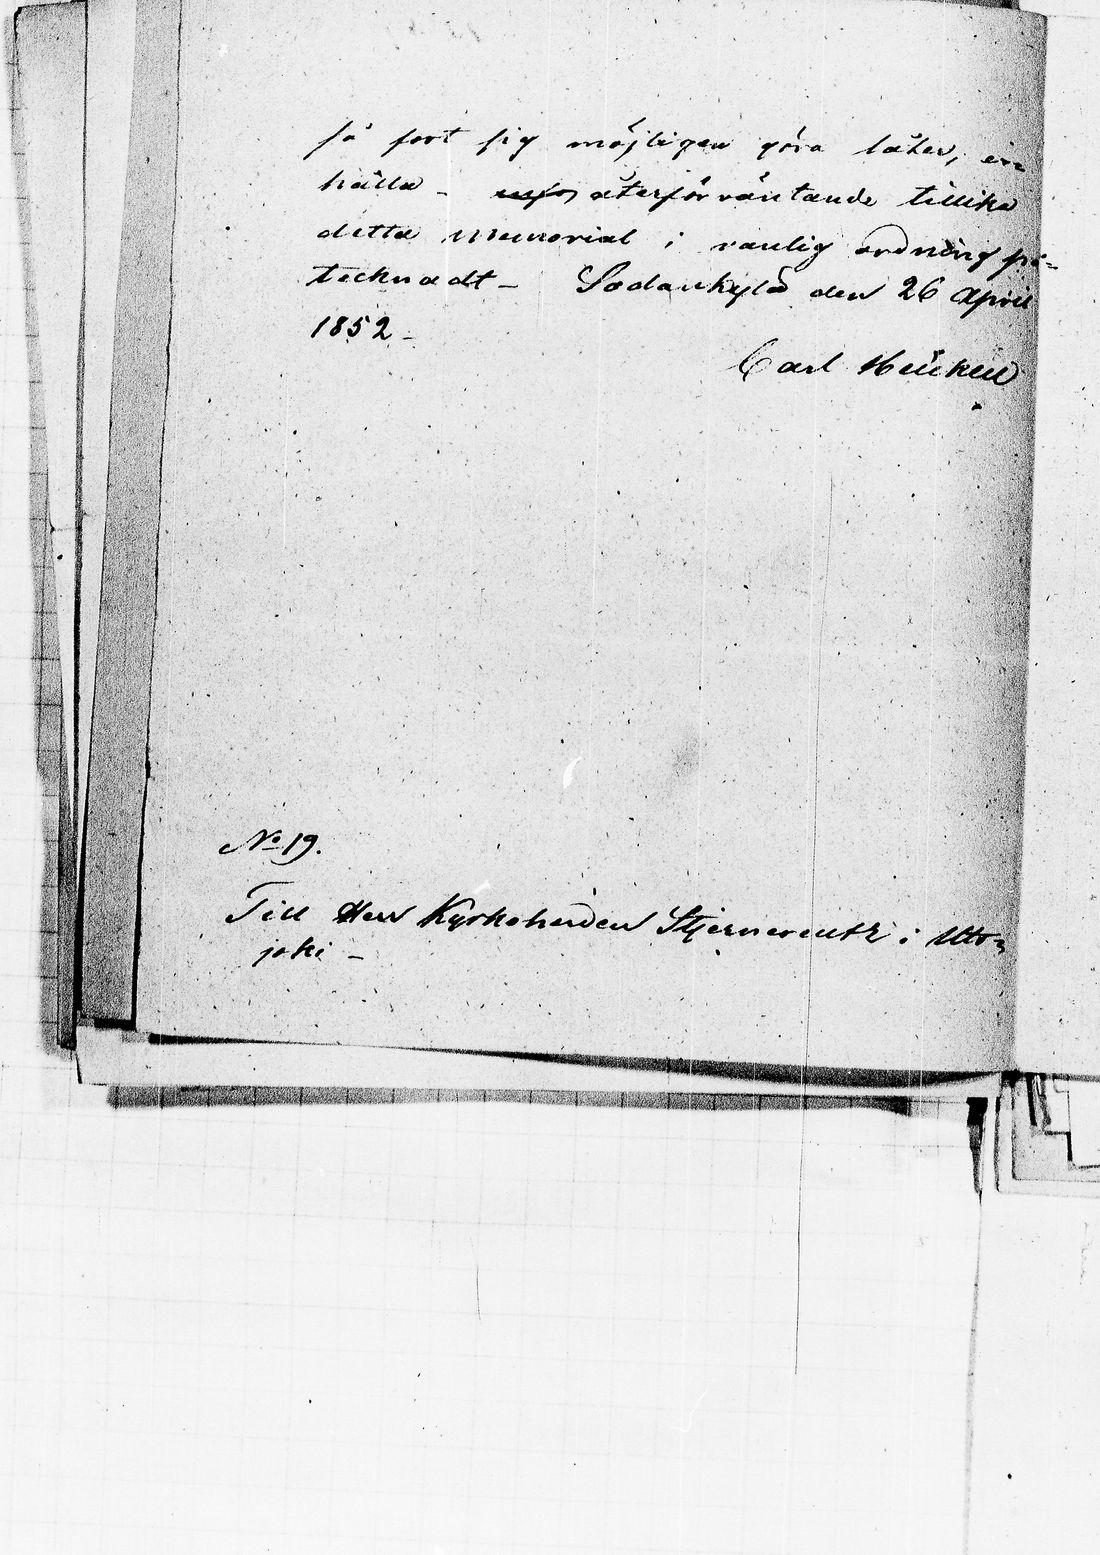 så fort sig möjligen göra låter, er-
hålla - återförväntande tillika
detta Memorial i vanlig ordning på-
tecknadt - Sodankylä den 26 April
1852 -
Carl Heikell
No 19.
Till Herr Kyrkoherden Stjernereutz i Uts-
joki -